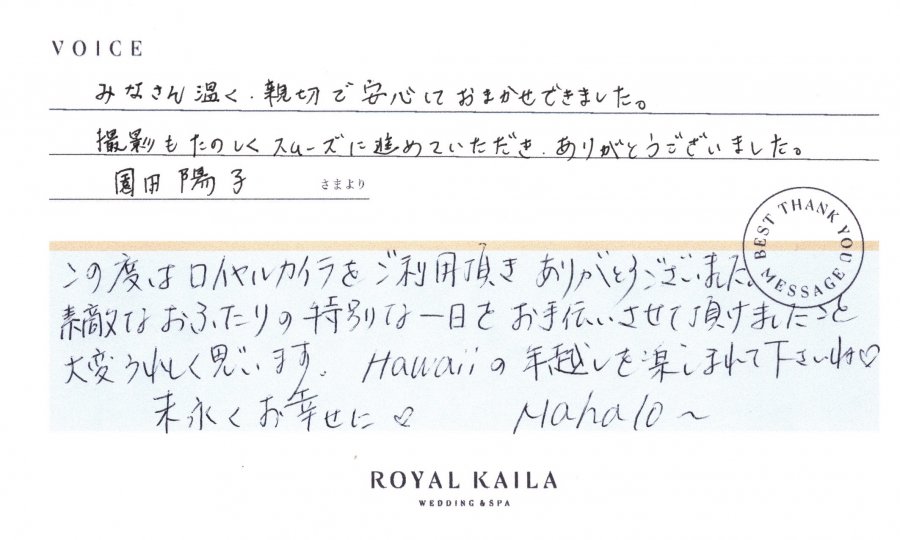 VOICE
みなさん温く、親切で安心しておまかせできました。
撮影もたのしくスムーズに進めていただき、ありがとうございました。
園田陽子 さまより
BEST THANK YOU MESSAGE
この度はロイヤルカイラをご利用頂きありがとうございました。
素敵なおふたりの特別な一日をお手伝いさせて頂けましたこと
大変うれしく思います。Hawaiiの年越しを楽しまれて下さいね♡
末永くお幸せに♡ Mahalo~
ROYAL KAILA
WEDDING & SPA